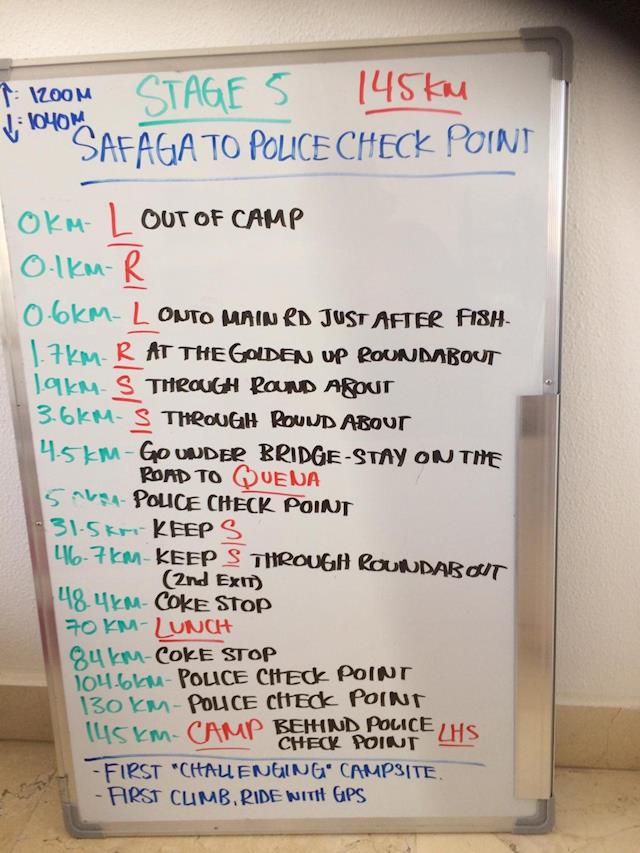 ↑: 1200M STAGE 5 145KM
↓: 1040M
SAFAGA TO POLICE CHECK POINT
0KM- L OUT OF CAMP
0.1KM- R
0.6KM- L ONTO MAIN RD JUST AFTER FISH.
1.7KM- R AT THE GOLDEN UP ROUNDABOUT
1.9KM- S THROUGH ROUND ABOUT
3.6KM- S THROUGH ROUND ABOUT
4.5KM- GO UNDER BRIDGE-STAY ON THE
ROAD TO QUENA
POLICE CHECK POINT
31.5KM- KEEP S
46.7KM- KEEP S THROUGH ROUNDABOUT
(2nd EXIT)
48.4KM- COKE STOP
70KM- LUNCH
84KM- COKE STOP
104.6KM- POLICE CHECK POINT
130KM- POLICE CHECK POINT
145KM- CAMP BEHIND POLICE LHS
CHECK POINT
-FIRST "CHALLENGING" CAMPSITE.
-FIRST CLIMB, RIDE WITH GPS